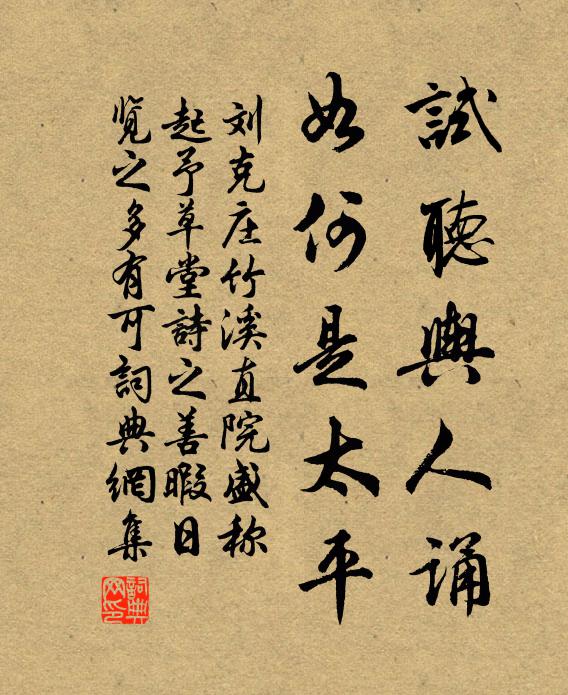 試聽輿人誦
如何是太平
刘克庄竹溪直院盛称
起予草堂詩之善暇日
覧之多有可詞典網集
詞典网印